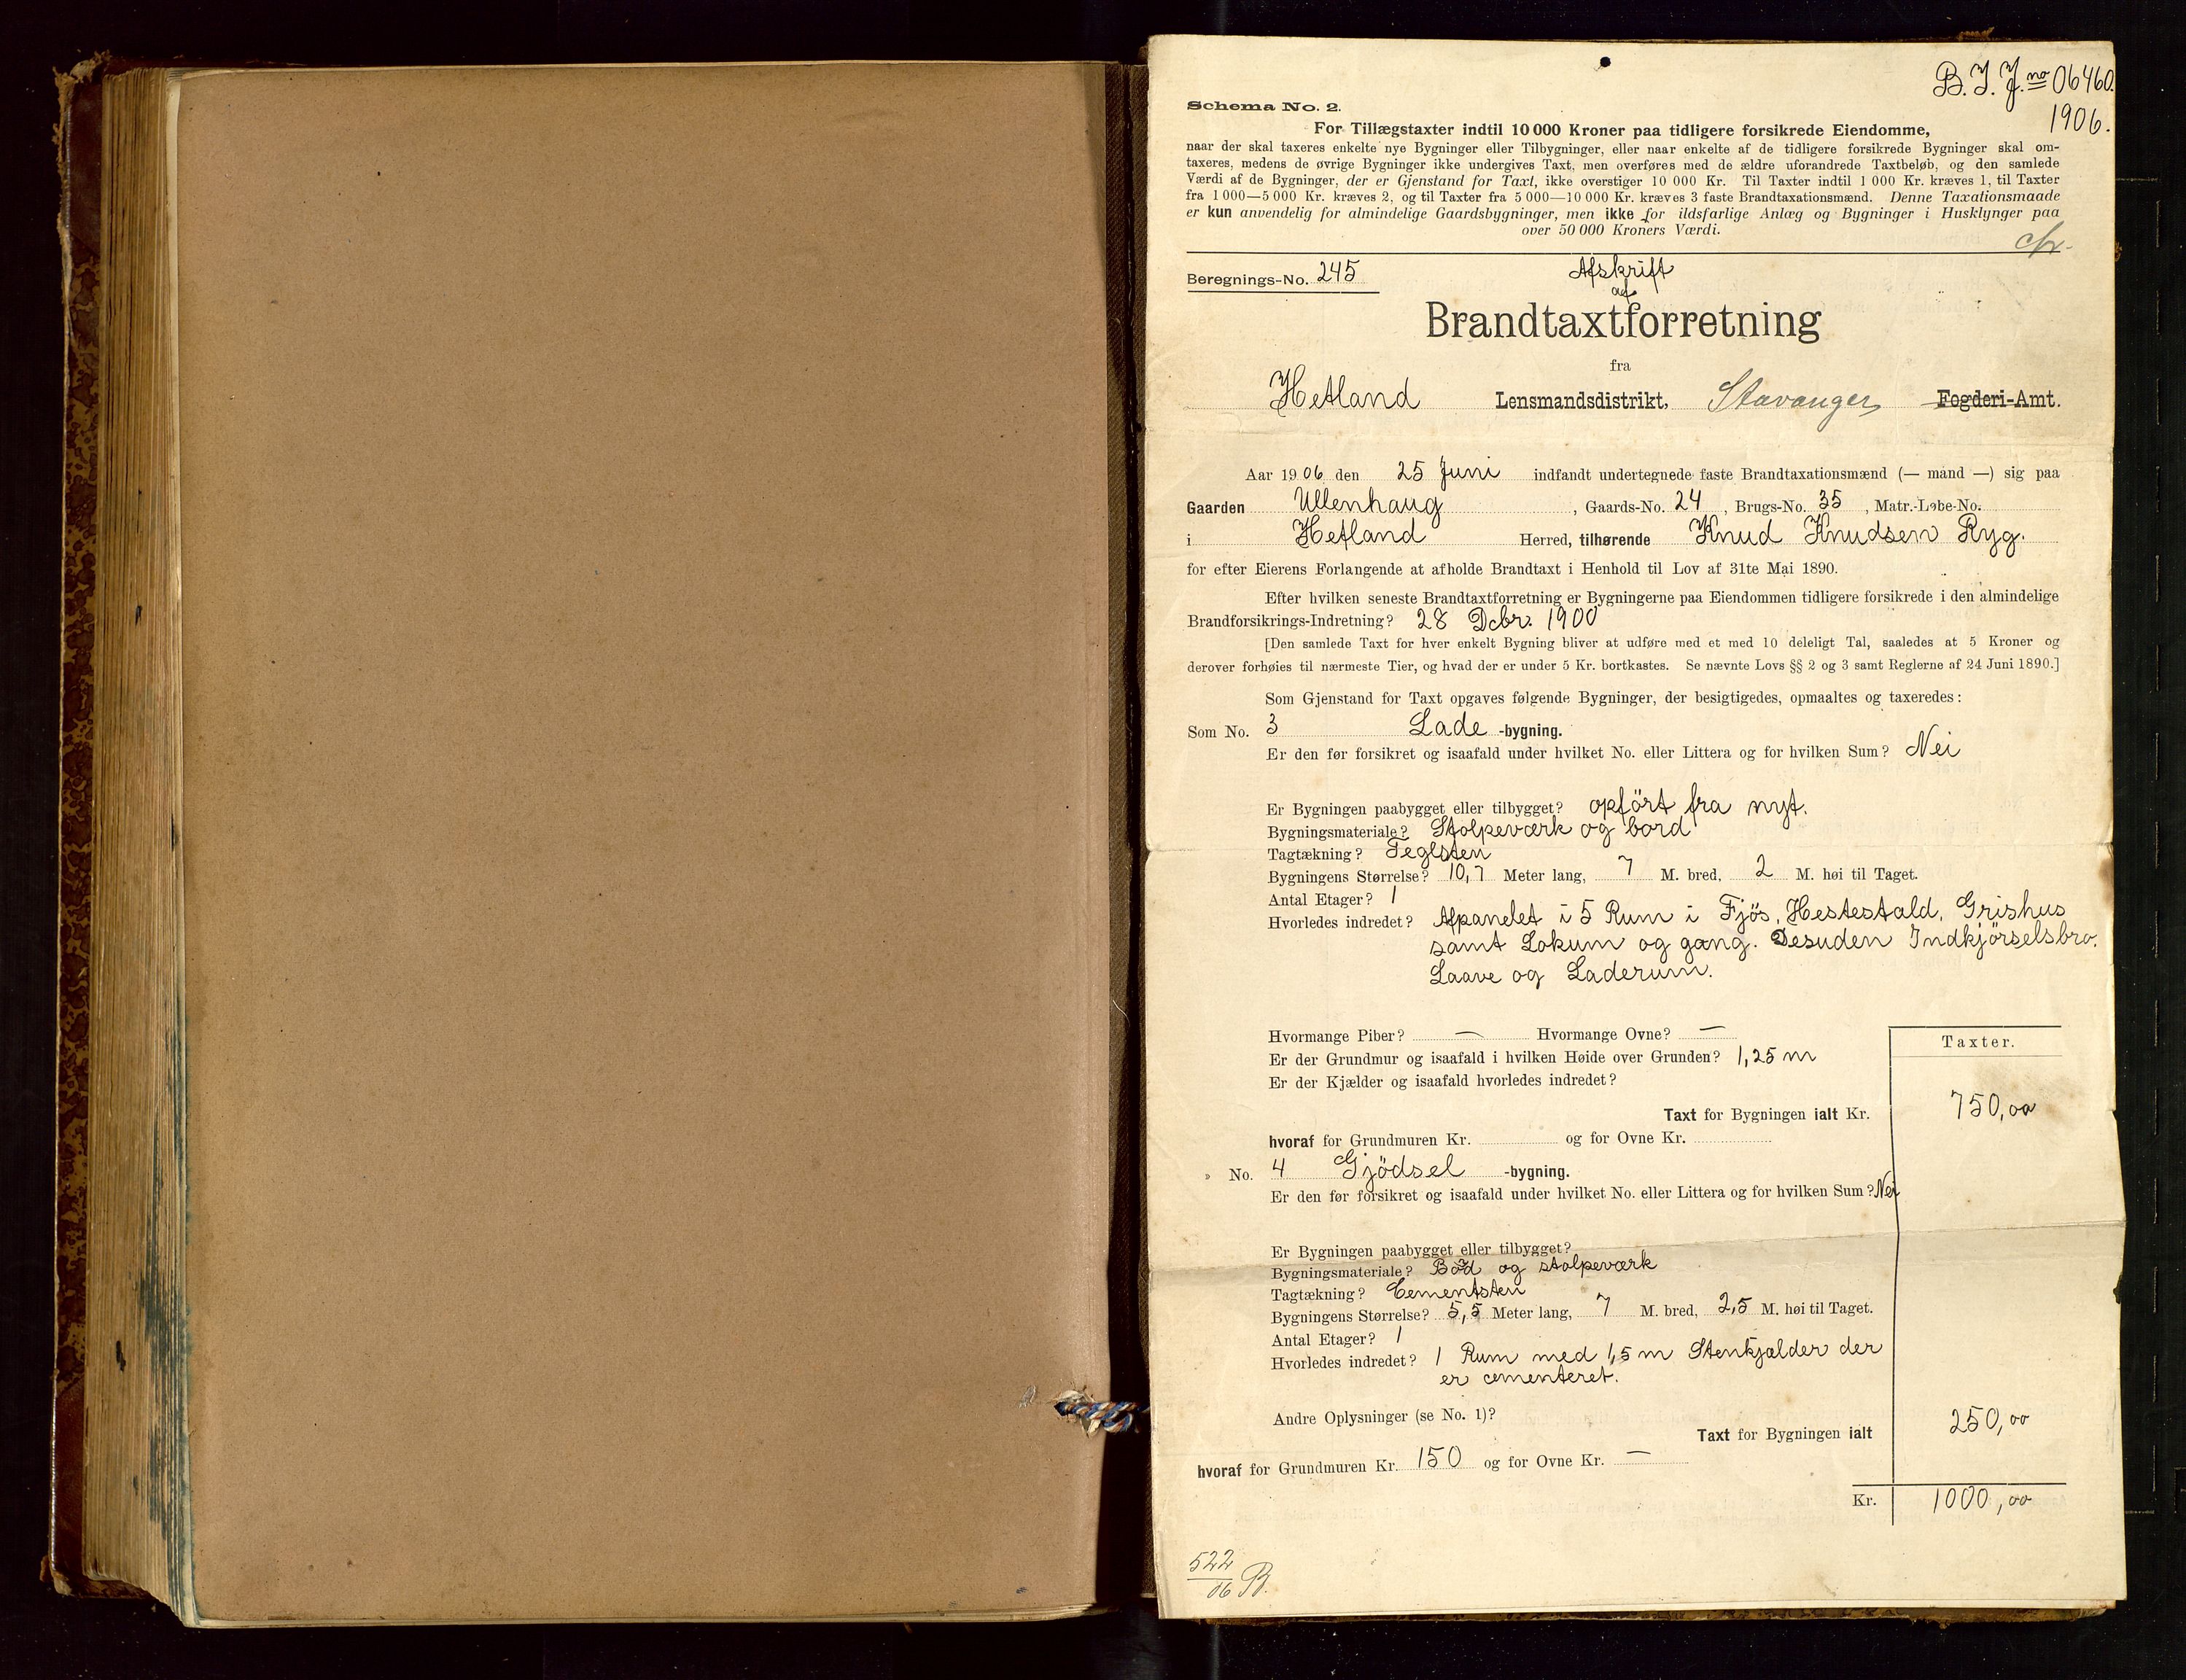 B. I. J. no 06460.
1906.
Schema No. 2.
For Tillægstaxter indtil 10 000 Kroner paa tidligere forsikrede Eiendomme,
naar der skal taxeres enkelte nye Bygninger eller Tilbygninger, eller naar enkelte af de tidligere forsikrede Bygninger skal om-
taxeres, medens de øvrige Bygninger ikke undergives Taxt, men overføres med de ældre uforandrede Taxtbeløb, og den samlede
Værdi af de Bygninger, der er Gjenstand for Taxt, ikke overstiger 10 000 Kr. Til Taxter indtil 1 000 Kr. kræves 1, til Taxter
fra 1 000—5 000 Kr. kræves 2, og til Taxter fra 5 000—10 000 Kr. kræves 3 faste Brandtaxationsmænd. Denne Taxationsmaade
er kun anvendelig for almindelige Gaardsbygninger, men ikke for ildsfarlige Anlæg og Bygninger i Husklynger paa
over 50 000 Kroners Værdi.
Beregnings-No. 245
Afskrift
af
Brandtaxtforretning
fra
Hetland Lensmandsdistrikt, Stavanger Fogderi-Amt.
Aar 1906 den 25 Juni indfandt undertegnede faste Brandtaxationsmænd (— mand —) sig paa
Gaarden Ullenhaug, Gaards-No. 24, Brugs-No. 35, Matr.-Løbe-No.
i Hetland Herred, tilhørende Knud Knudsen Ryg.
for efter Eierens Forlangende at afholde Brandtaxt i Henhold til Lov af 31te Mai 1890.
Efter hvilken seneste Brandtaxtforretning er Bygningerne paa Eiendommen tidligere forsikrede i den almindelige
Brandforsikrings-Indretning? 28 Dcbr. 1900
[Den samlede Taxt for hver enkelt Bygning bliver at udføre med et med 10 deleligt Tal, saaledes at 5 Kroner og
derover forhøies til nærmeste Tier, og hvad der er under 5 Kr. bortkastes. Se nævnte Lovs §§ 2 og 3 samt Reglerne af 24 Juni 1890.]
Som Gjenstand for Taxt opgaves følgende Bygninger, der besigtigedes, opmaaltes og taxeredes:
Som No. 3 Lade -bygning.
Er den før forsikret og isaafald under hvilket No. eller Littera og for hvilken Sum? Nei
Er Bygningen paabygget eller tilbygget? opfört fra nyt.
Bygningsmateriale? Stolpeværk og bord
Tagtækning? Teglsten
Bygningens Størrelse? 10,7 Meter lang, 7 M. bred, 2 M. høi til Taget.
Antal Etager? 1
Hvorledes indredet? Afpanelet i 5 Rum i Fjös, Hestestald, Grishus
samt Lokum og gang. Desuden Indkjörselsbro.
Laave og Laderum.
Hvormange Piber? — Hvormange Ovne? —
Er der Grundmur og isaafald i hvilken Høide over Grunden? 1,25 m
Er der Kjælder og isaafald hvorledes indredet?
Taxter.
Taxt for Bygningen ialt Kr. 750,00
hvoraf for Grundmuren Kr. og for Ovne Kr.
» No. 4 Gjödsel -bygning.
Er den før forsikret og isaafald under hvilket No. eller Littera og for hvilken Sum? Nei
Er Bygningen paabygget eller tilbygget?
Bygningsmateriale? Bord og stolpeværk
Tagtækning? Cementsten
Bygningens Størrelse? 5,5 Meter lang, 7 M. bred, 2,5 M. høi til Taget.
Antal Etager? 1
Hvorledes indredet? 1 Rum med 1,5 m Stenkjælder der
er cementeret.
Andre Oplysninger (se No. 1)?
Taxt for Bygningen ialt 250,00
hvoraf for Grundmuren Kr. 150 og for Ovne Kr. —
Kr. 1000,00
522
06 B.